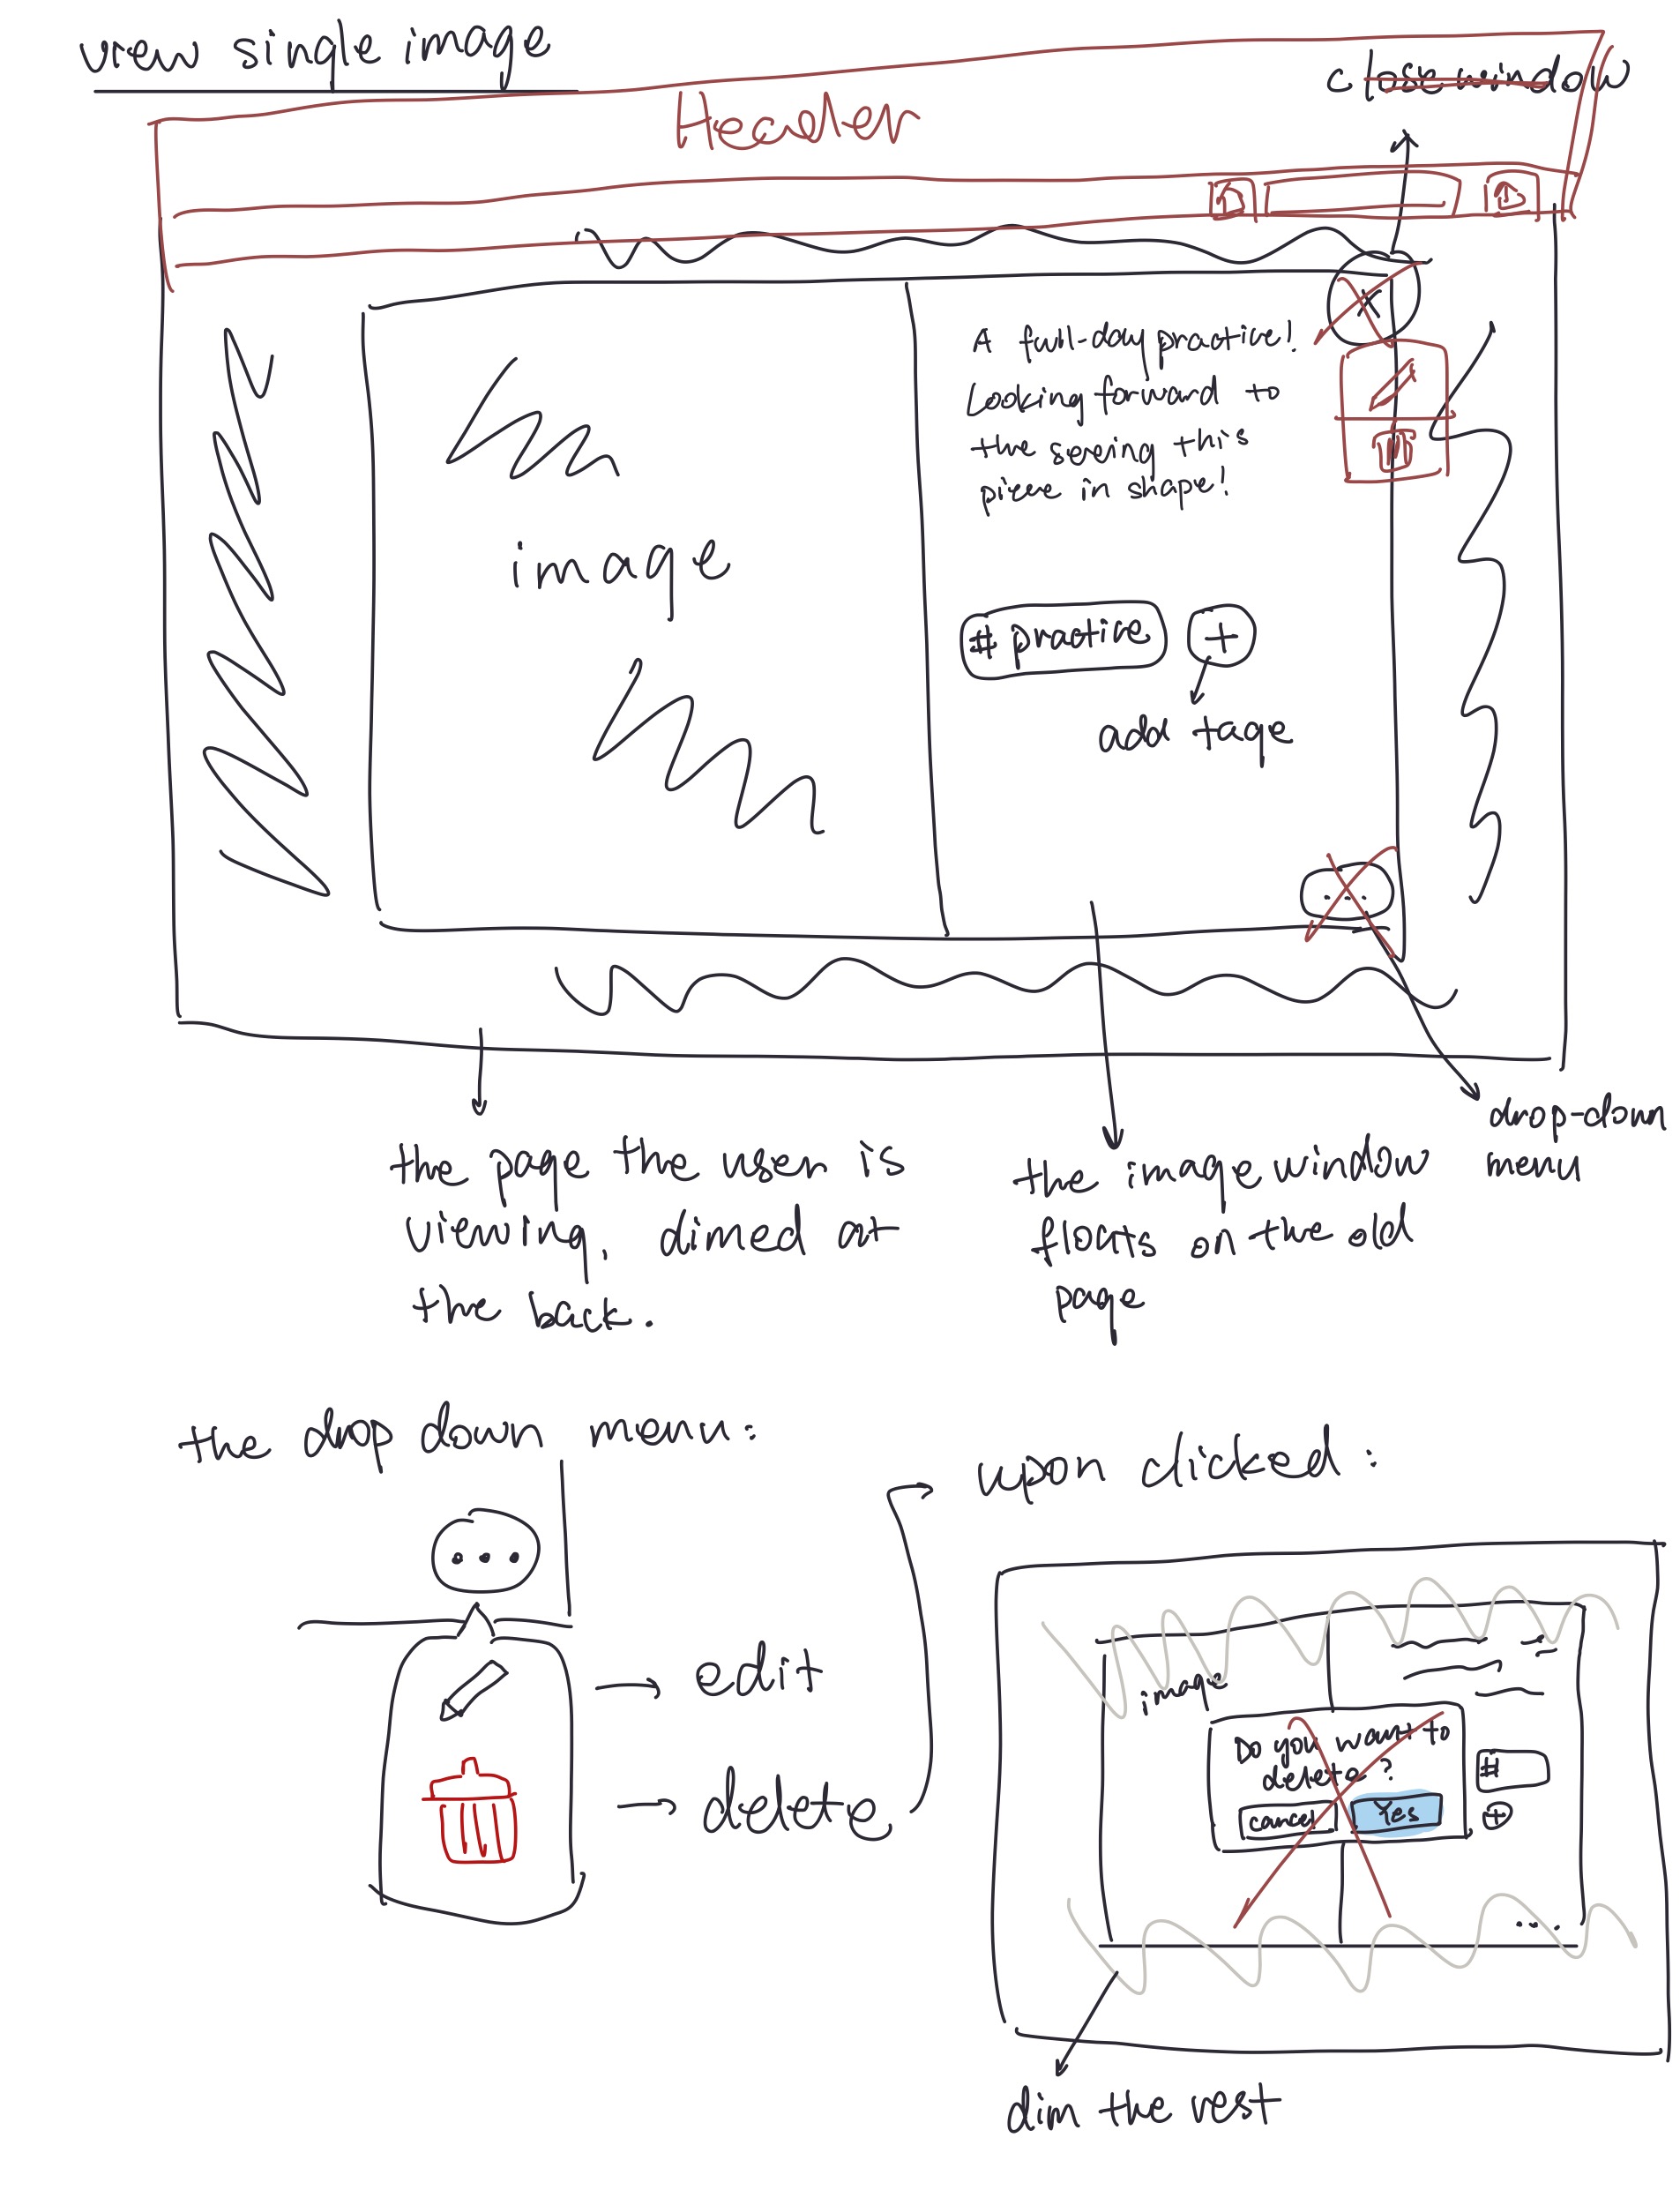 view single image
close window
Header
A full-day practice!
Looking forward to
the seeing this
piece in shape!
image
# practice
+
add tage
...
drop-down
menu
the page the user is
viewing. dimed at
the back.
the image window
floats on the old
page
the drop down menu:
...
edit
delete
upon clicked:
image
Do you want to
delete ?
cancel
Yes
#
+
...
dim the rest